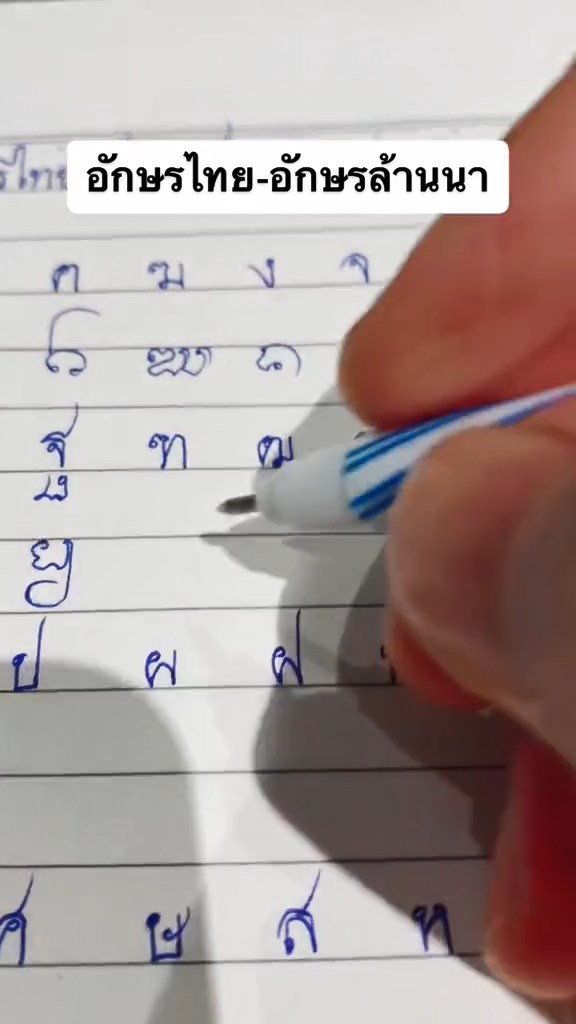 อักษรไทย-อักษรล้านนา
ฅ ฆ ง จ
ᨤ ᨥ ᨦ
ฐ ฑ ฒ
ᨮ
ป ผ ฝ
ศ ษ ส ห